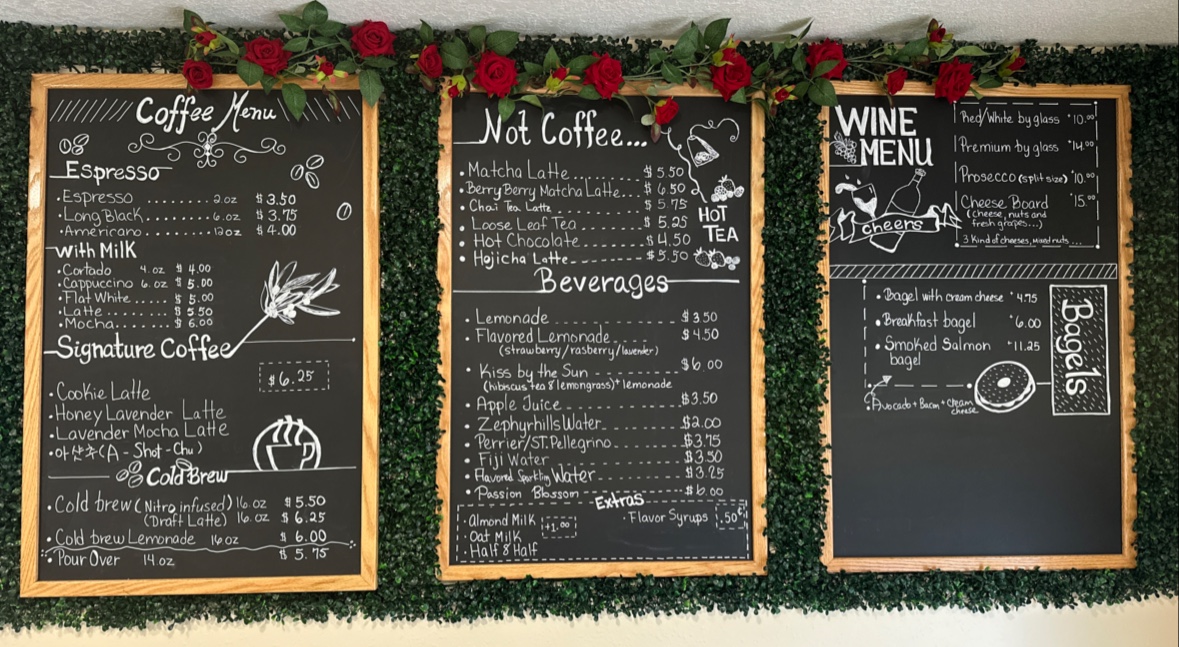 Coffee Menu
Espresso
• Espresso ......... 2oz $ 3.50
• Long Black ........ 6.oz $ 3.75
• Americano ........ 12oz $ 4.00
with Milk
• Cortado 4.oz $ 4.00
• Cappuccino 6.oz $ 5.00
• Flat White ..... $ 5.00
• Latte ....... $ 5.50
• Mocha ....... $ 6.00
Signature Coffee
$ 6.25
• Cookie Latte
• Honey Lavender Latte
• Lavender Mocha Latte
• (A - Shot - Chu)
Cold Brew
• Cold brew (Nitro infused) 16.oz $ 5.50
(Draft Latte) 16.oz $ 6.25
• Cold brew Lemonade 16oz $ 6.00
• Pour Over 14.oz $ 5.75
Not Coffee...
• Matcha Latte ....... $ 5.50
• Berry Berry Matcha Latte... $ 6.50
• Chai Tea Latte $ 5.75
• Loose Leaf Tea $ 5.25
• Hot Chocolate $ 4.50
• Hojicha Latte $ 5.50
HOT
TEA
Beverages
• Lemonade $ 3.50
• Flavored Lemonade $ 4.50
(strawberry/rasberry/lavender)
• Kiss by the Sun $ 6.00
(hibiscus tea & lemongrass)+ lemonade
• Apple Juice $ 3.50
• Zephyrhills Water $2.00
• Perrier/ST. Pellegrino $3.75
• Fiji Water $3.50
• Flavored Sparkling Water $3.25
• Passion Blossom $6.00
Extras
• Almond Milk +1.00
• Oat Milk
• Half & Half
• Flavor Syrups .50¢
WINE
MENU
cheers
Red/White by glass 10.00
Premium by glass 14.00
Prosecco (split size) 10.00
Cheese Board 15.00
(cheese, nuts and
fresh grapes...)
3 Kind of cheeses, mixed nuts ...
Bagels
• Bagel with cream cheese 4.75
• Breakfast bagel 6.00
• Smoked Salmon 11.25
bagel
Avocado + Bacon + cream
cheese